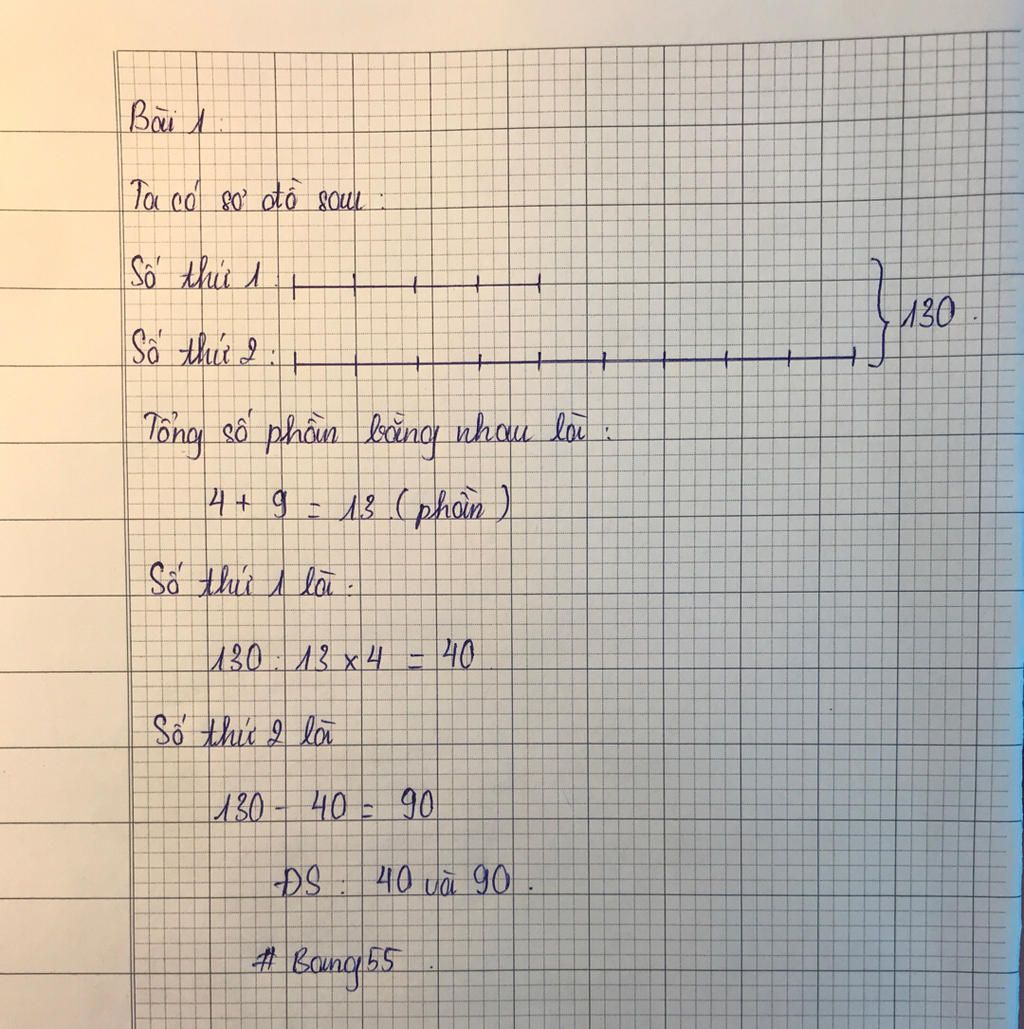 Bài 1:
Ta có sơ đồ sau:
Số thứ 1:
Số thứ 2:
130.
Tổng số phần bằng nhau là:
4 + 9 = 13 (phần)
Số thứ 1 là:
130 : 13 x 4 = 40
Số thứ 2 là
130 - 40 = 90
ĐS: 40 và 90.
# Bang55.